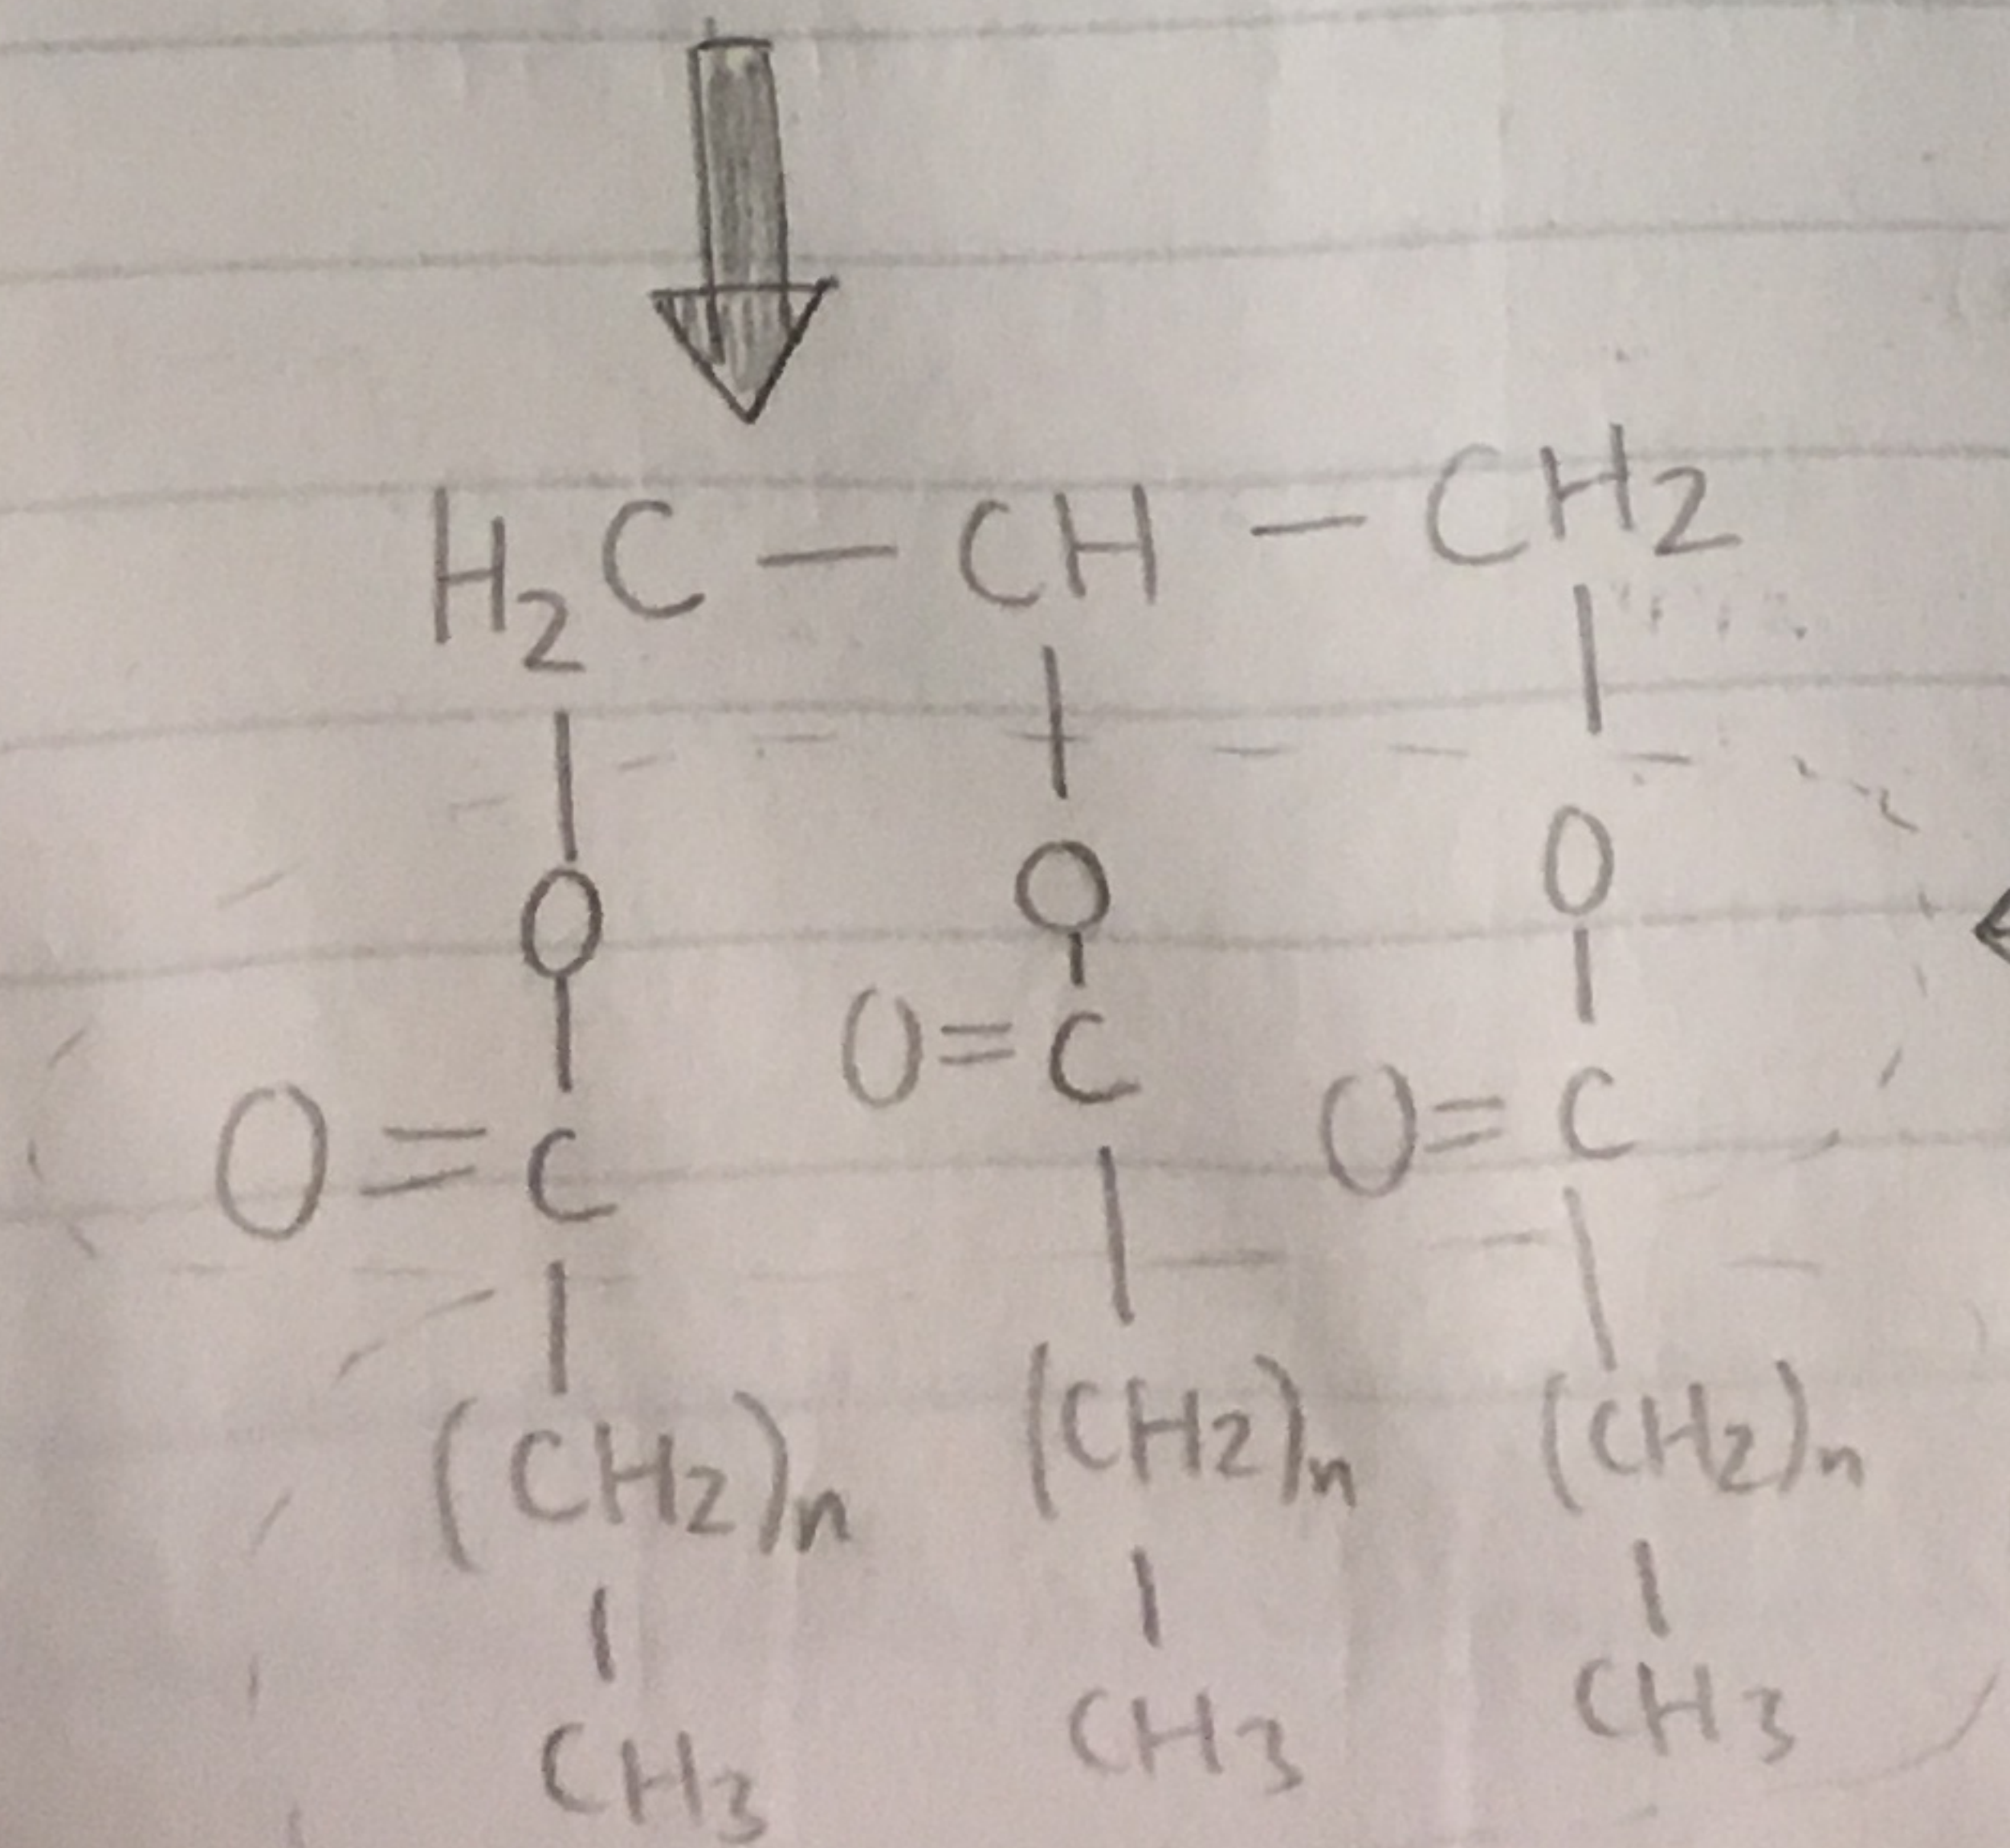 H2C — CH — CH2
O O O
O=C O=C O=C
(CH2)n (CH2)n (CH2)n
CH3 CH3 CH3